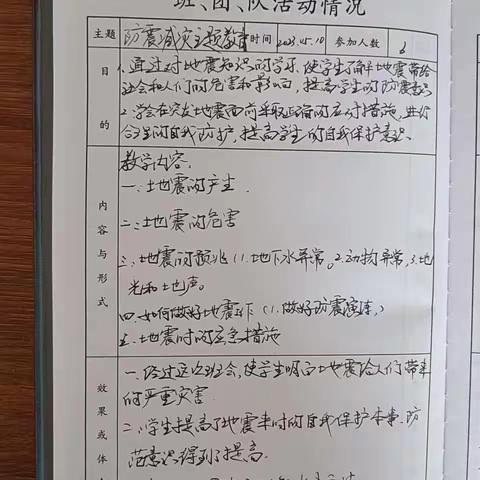 班、团、队活动情况
主题 防震减灾主题教育 时间 2023.05.10 参加人数 6
目的
1.通过对地震知识的学习,使学生了解地震带给
社会和人们的危害和影响,提高学生的防震意识
2.学会在突发地震面前采取正确的应对措施,进行
合理的自我防护,提高学生的自我保护意识.
内容与形式
教学内容:
一.地震的产生
二.地震的危害
三.地震的预兆(1.地下水异常。2.动物异常,3.地
光和土地声。
四.如何做好地震工作(1.做好防震演练,)
五.地震时的应急措施
效果或体
一.经过这次班会,使学生明白地震给人们带来
的严重灾害
二.学生提高了地震来时的自我保护本事.防
范意识得到了提高.